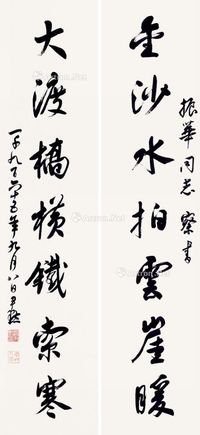 振華同志
金沙水拍雲崖暖
大渡橋橫鐵索寒
一千九百六十五年九月八日尹默